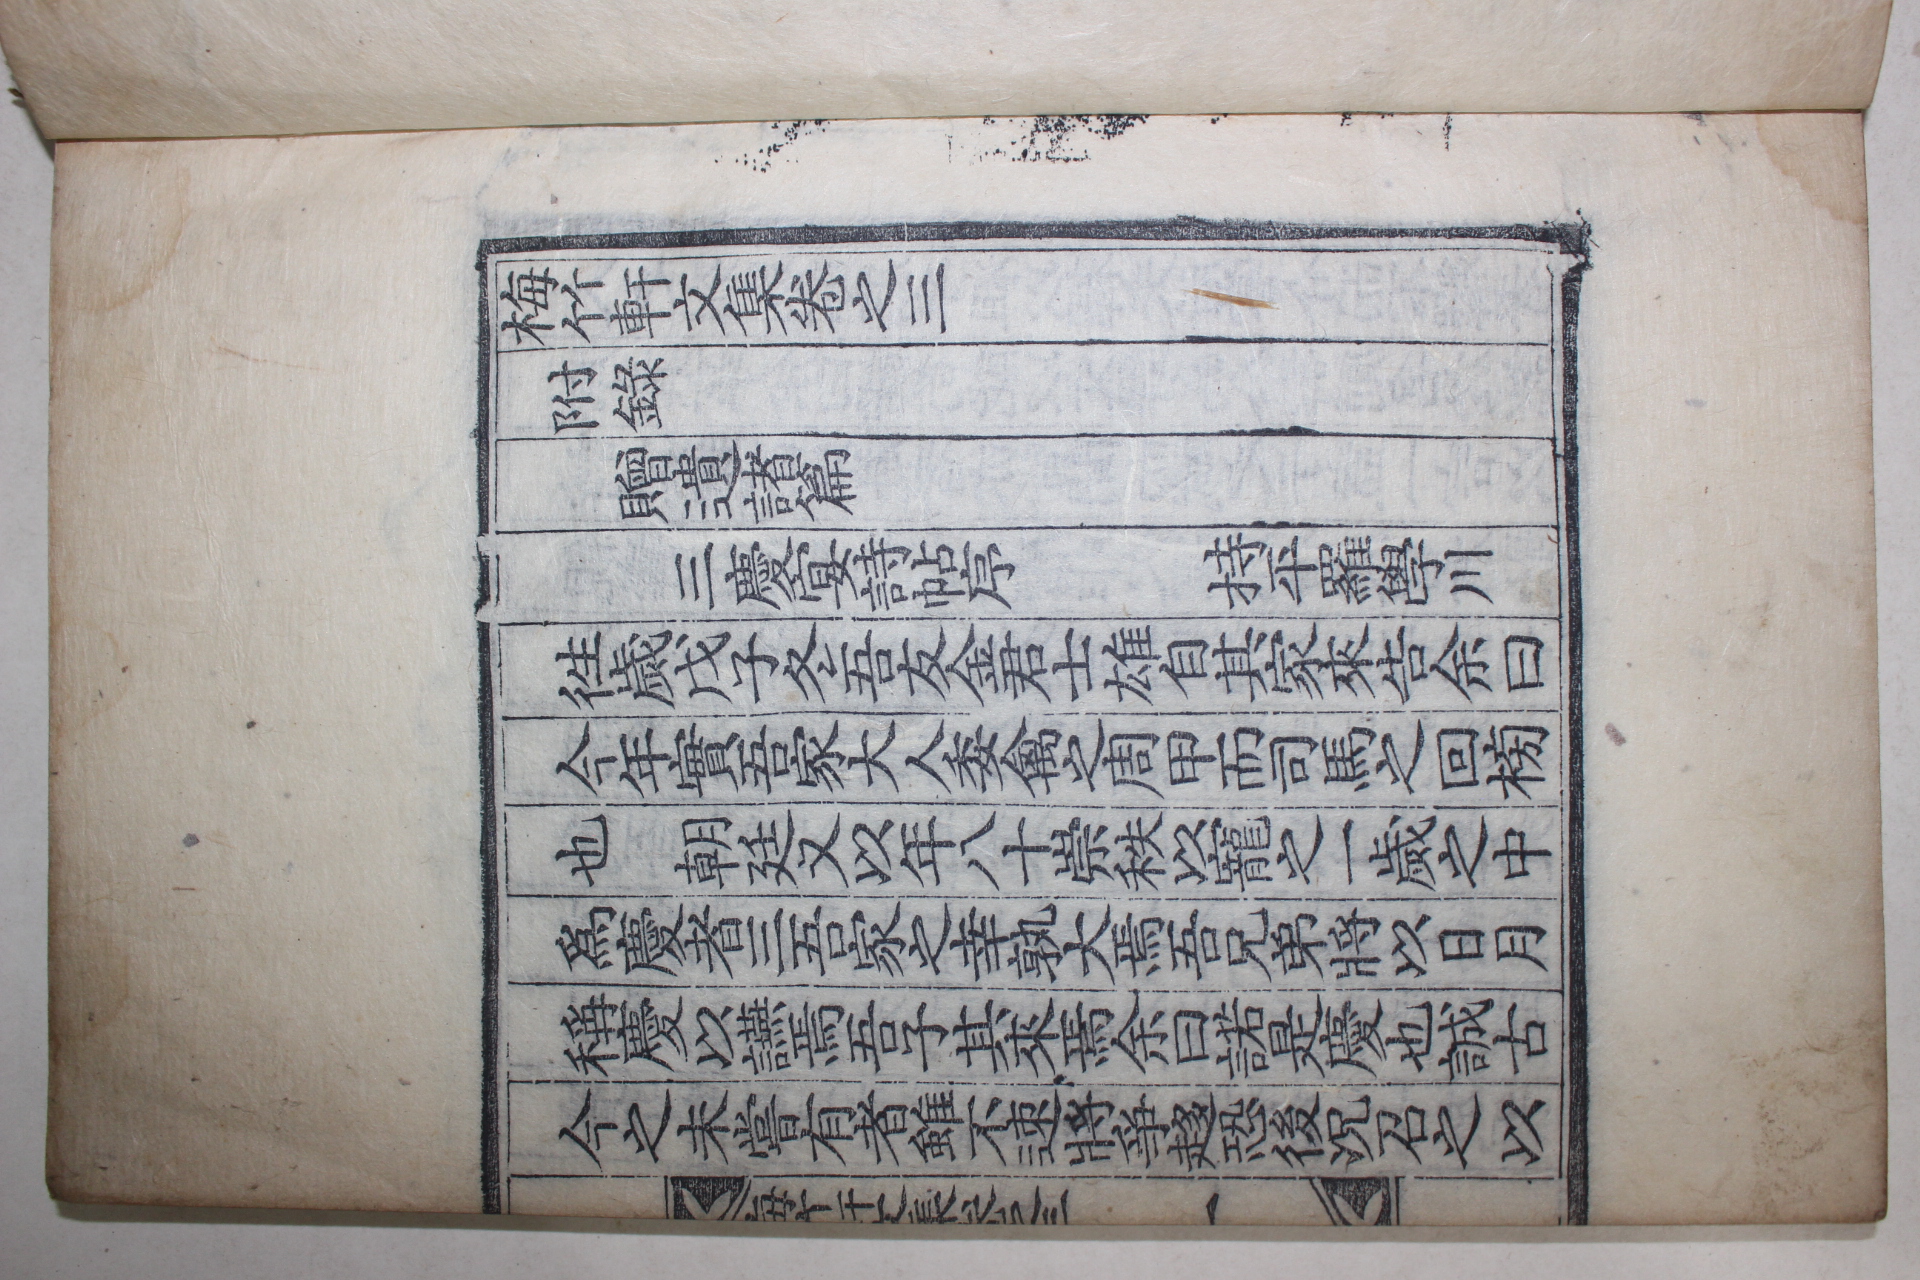 梅竹軒文集卷之三
附錄
贈遺諸篇
三慶宴詩帖序 持平羅學川
往歲戊子夊吾友金君士雄自其家來告余曰
今年實吾家大人委禽之周甲而司馬之回榜
也 朝廷又以年八十崇秩以寵之一歲之中
爲慶者三吾家之幸孰大焉吾兄弟將以日月
稱慶以讌焉吾子其來焉余曰諾是慶也誠古
今之未嘗有者雖不速將犇趍恐後况召之以
梅竹軒文集卷之三 一